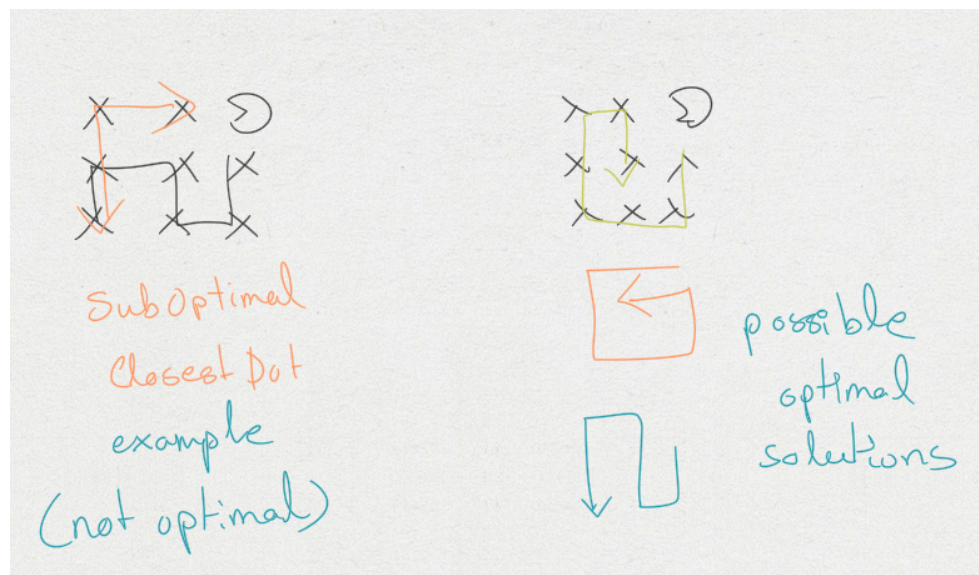 SubOptimal
Closest Dot
example
(not optimal)
possible
optimal
solutions